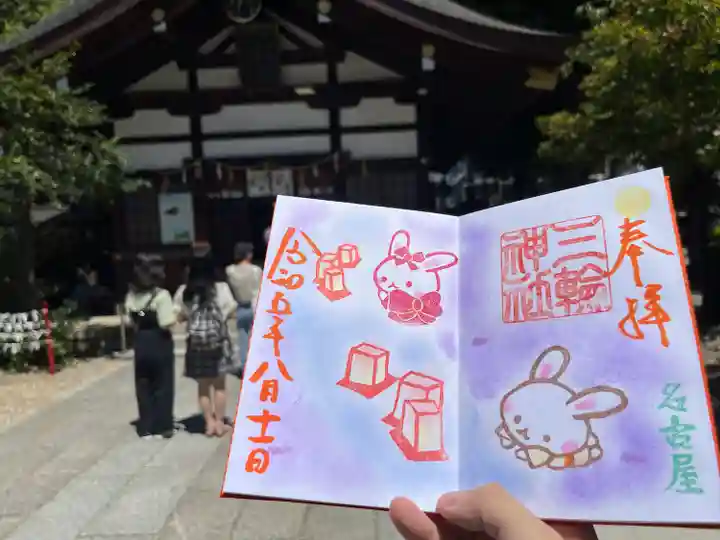 奉拝
三輪
神社
名古屋
令和五年八月十一日